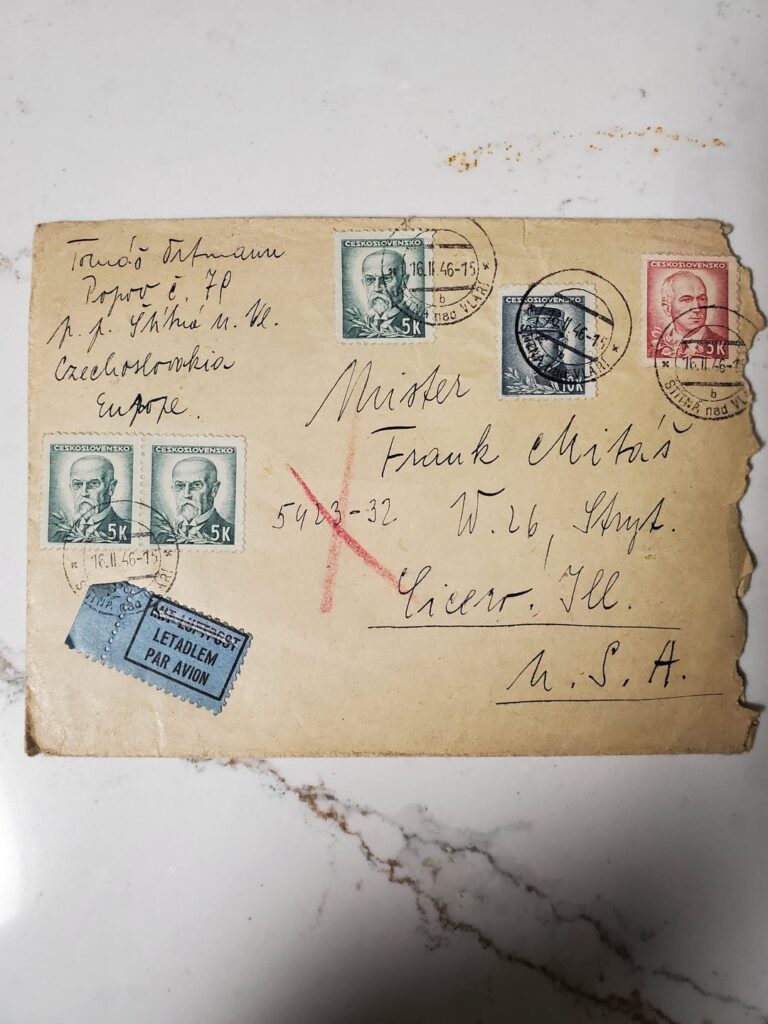 Tomáš Ortmann
Popov č. 79
p. p. Štítná n. Vl.
Czechoslovakia
Europe.
ČESKOSLOVENSKO
5K
16.II.46-15
b
ŠTÍTNÁ nad VLÁŘÍ
ČESKOSLOVENSKO
10K
16.II.46-15
ŠTÍTNÁ nad VLÁŘÍ
ČESKOSLOVENSKO
5K
16.II.46-15
b
ŠTÍTNÁ nad VL
Mister
Frank Mitáš
5423-32 W. 26, Stryt.
Cicero. Ill.
U. S. A.
ČESKOSLOVENSKO
5K
ČESKOSLOVENSKO
5K
16.II.46-15
MIT LUFTPOST
LETADLEM
PAR AVION